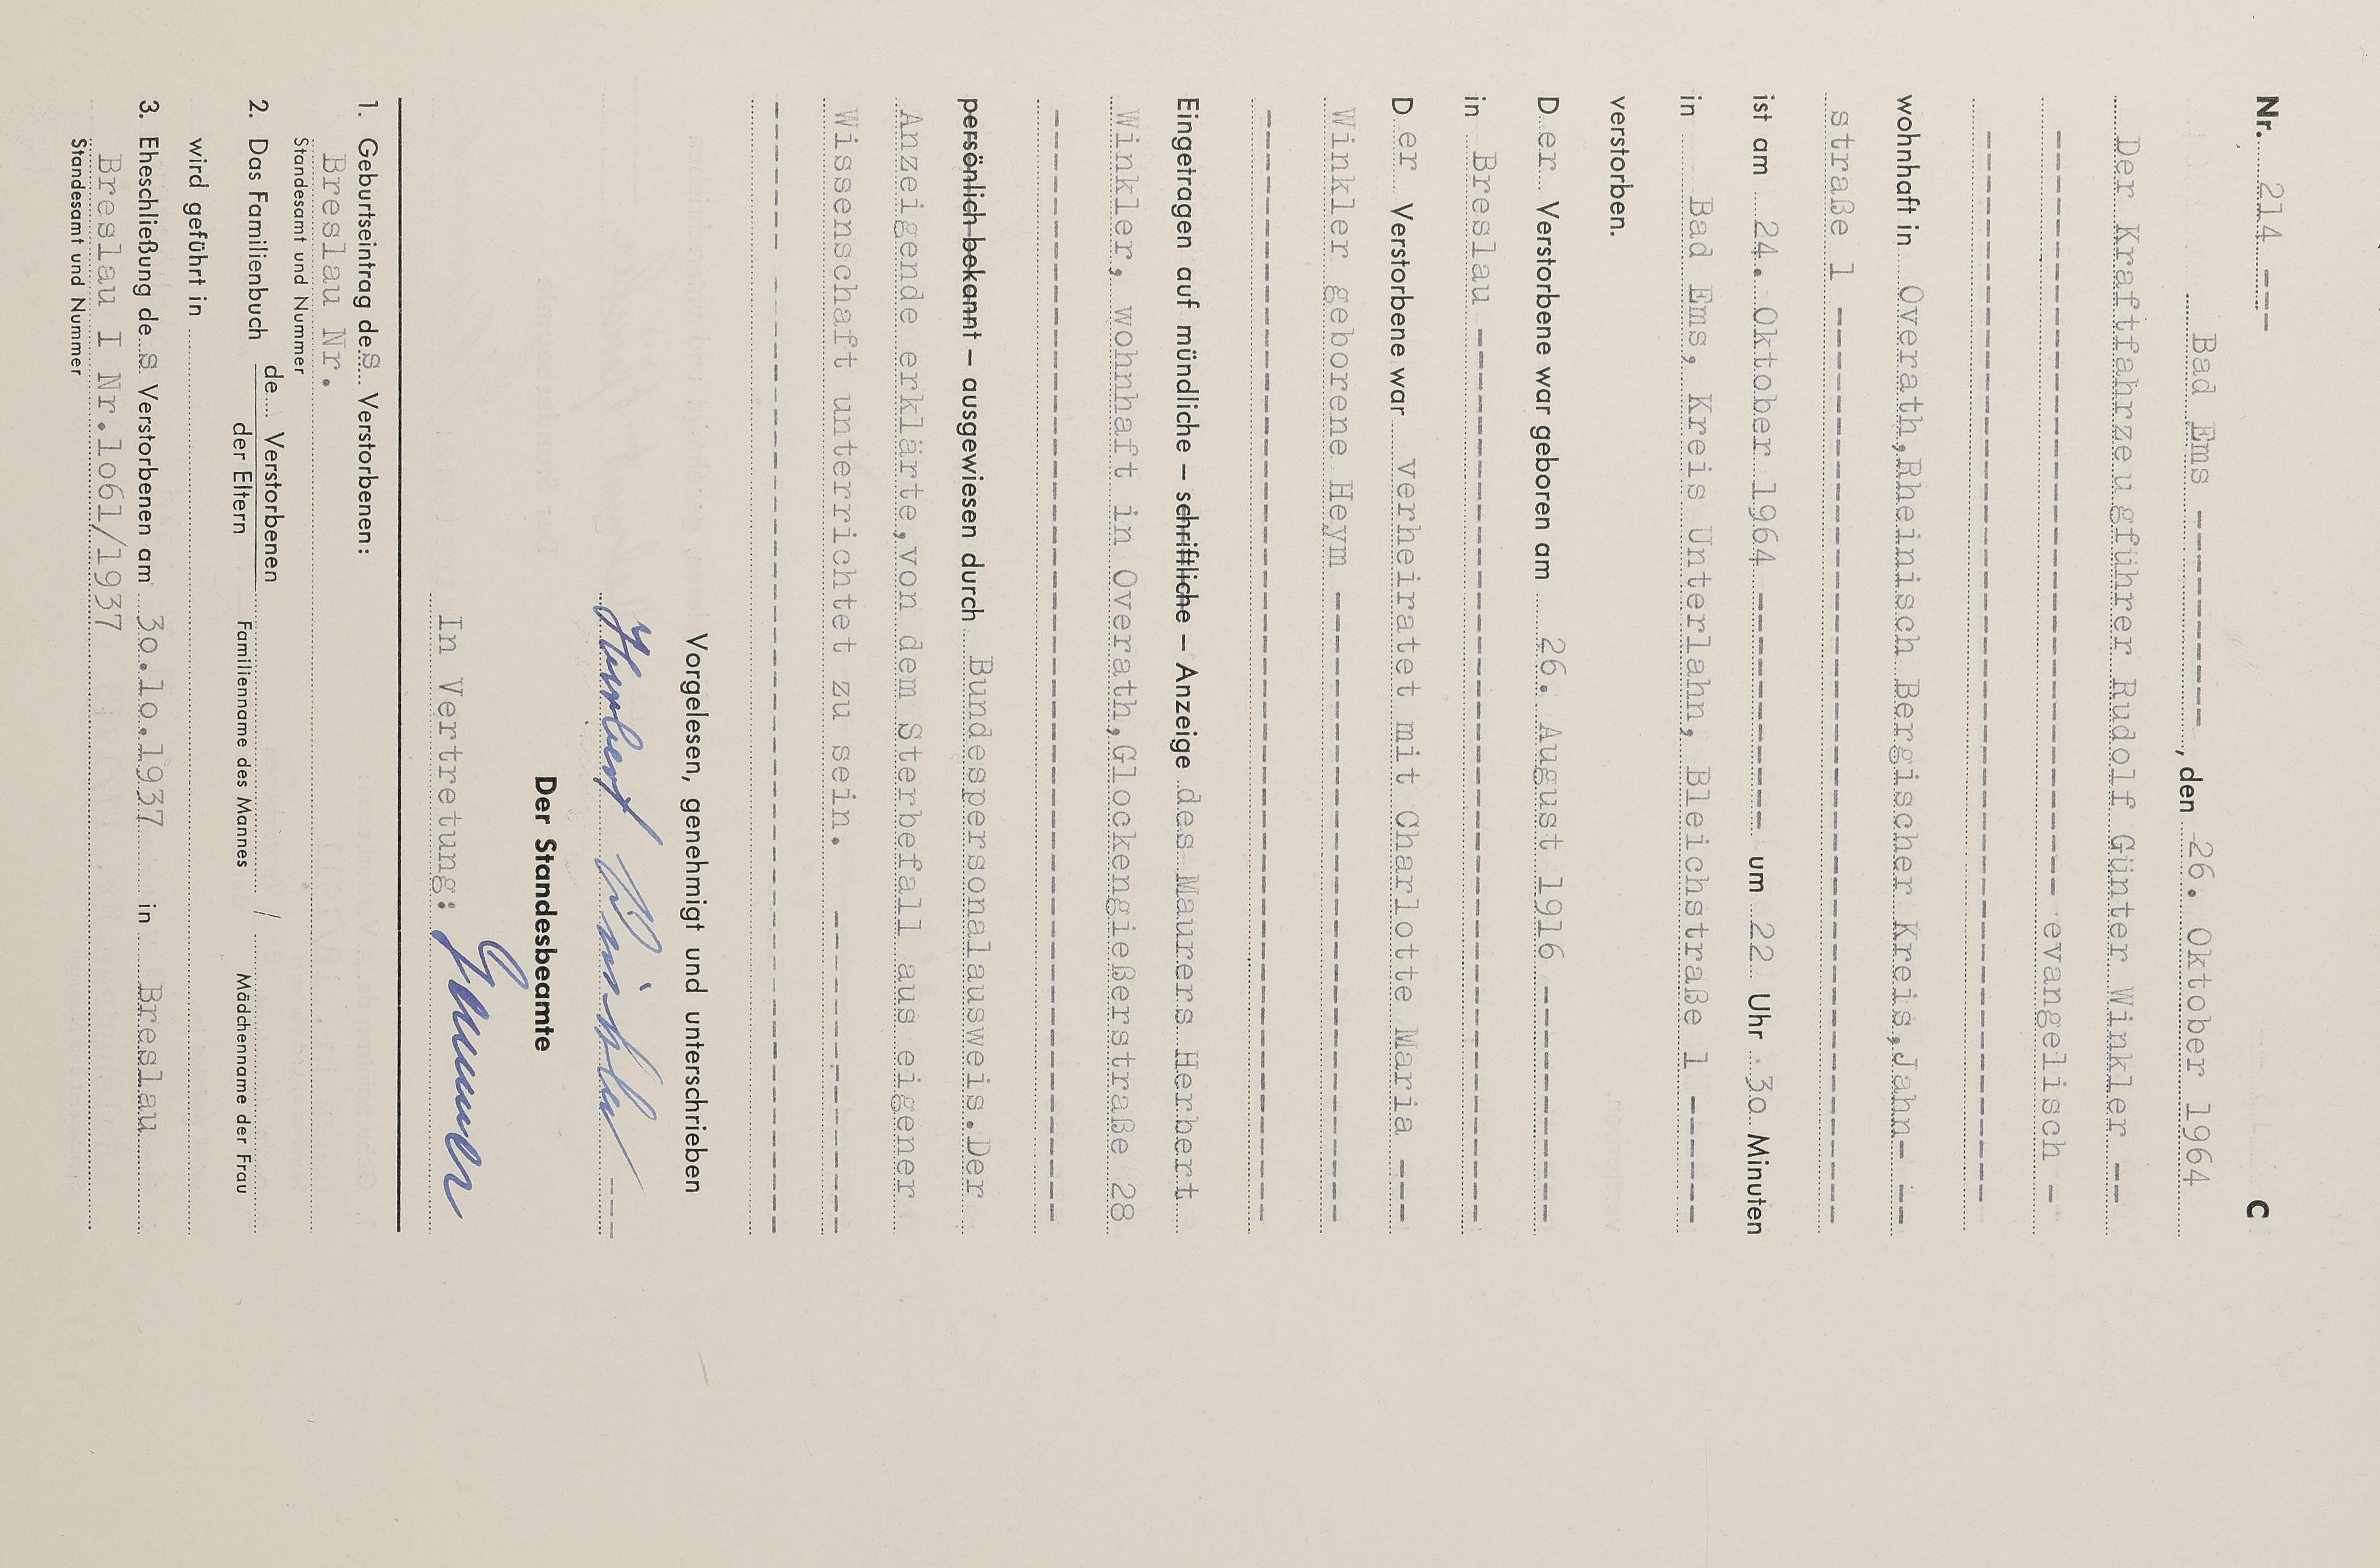 Nr. 214 --- C
Bad Ems --------, den 26. Oktober 1964
Der Kraftfahrzeugführer Rudolf Günter Winkler --
-------------------------- evangelisch -
wohnhaft in Overath,Rheinisch Bergischer Kreis,Jahn- --
straße 1 --------------------------------
ist am 24. Oktober 1964 --------- um 22 Uhr 3o Minuten
in Bad Ems, Kreis Unterlahn, Bleichstraße 1 -----
verstorben.
D er Verstorbene war geboren am 26. August 1916 ---------
in Breslau --------------------------------
D er Verstorbene war verheiratet mit Charlotte Maria ---
Winkler geborene Heym ----------------------
Eingetragen auf mündliche – schriftliche – Anzeige des Maurers Herbert
Winkler, wohnhaft in Overath,Glockengießerstraße 28
persönlich bekannt – ausgewiesen durch Bundespersonalausweis.Der
Anzeigende erklärte,von dem Sterbefall aus eigener
Wissenschaft unterrichtet zu sein. ------------
Vorgelesen, genehmigt und unterschrieben
Herbert Winkler ---
Der Standesbeamte
In Vertretung:
1. Geburtseintrag des Verstorbenen:
Breslau Nr.
Standesamt und Nummer
2. Das Familienbuch de Verstorbenen / der Eltern
Familienname des Mannes / Mädchenname der Frau
wird geführt in
3. Eheschließung de s Verstorbenen am 3o.lo.1937 in Breslau
Breslau I Nr.lo61/1937
Standesamt und Nummer